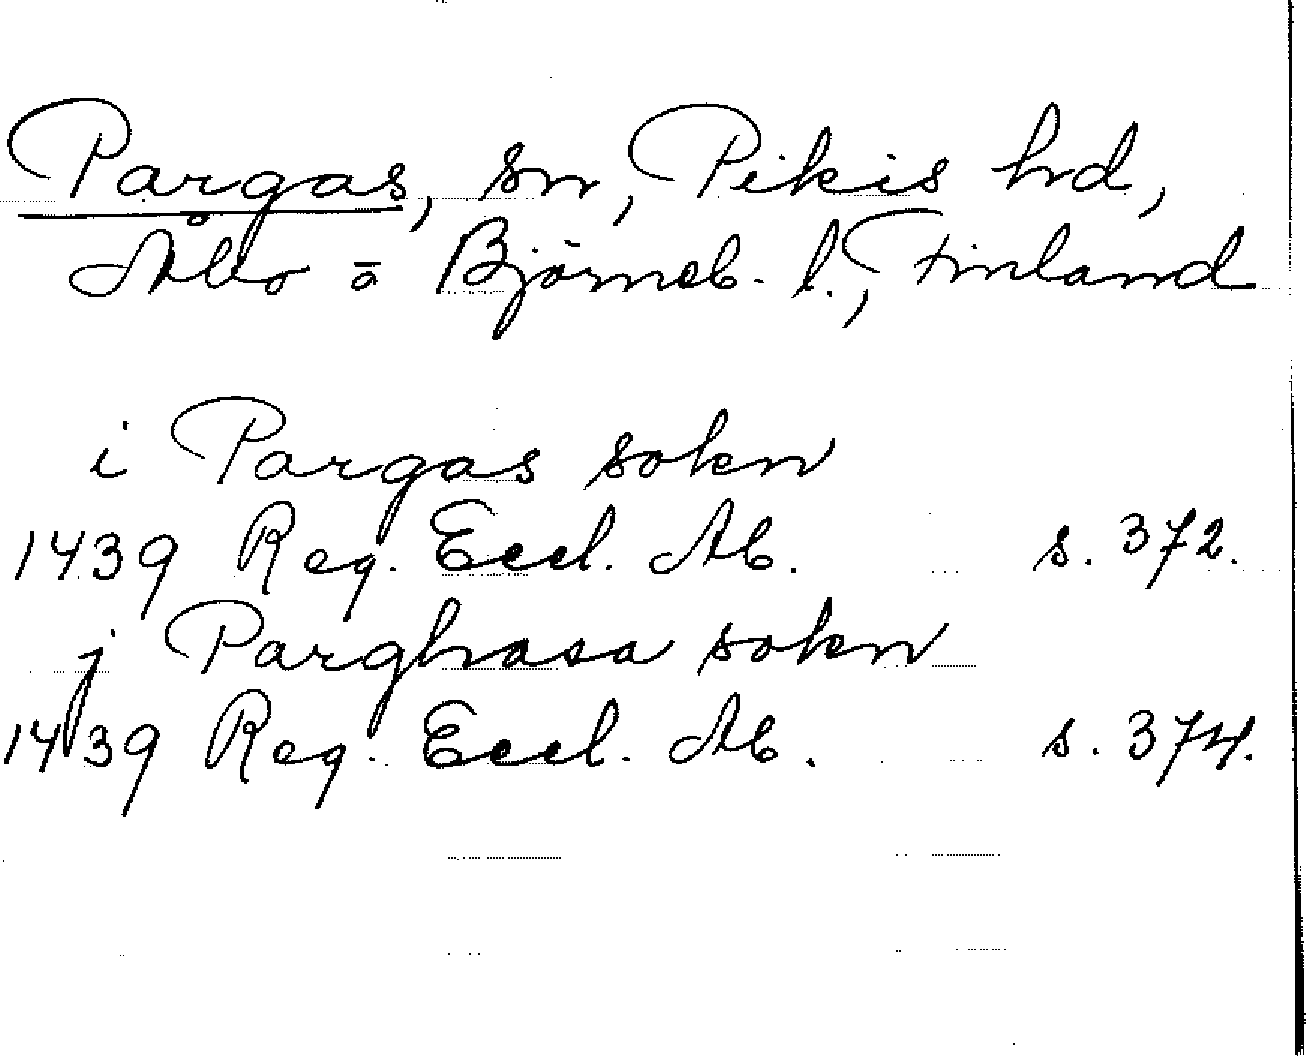 Pargas, sn, Pikis hrd,
Åbo o Björneb. l., Finland
i Pargas sokn
1439 Reg. Eccl. Ab. s. 372.
j Parghasa sokn
1439 Reg. Eccl. Ab. s. 374.